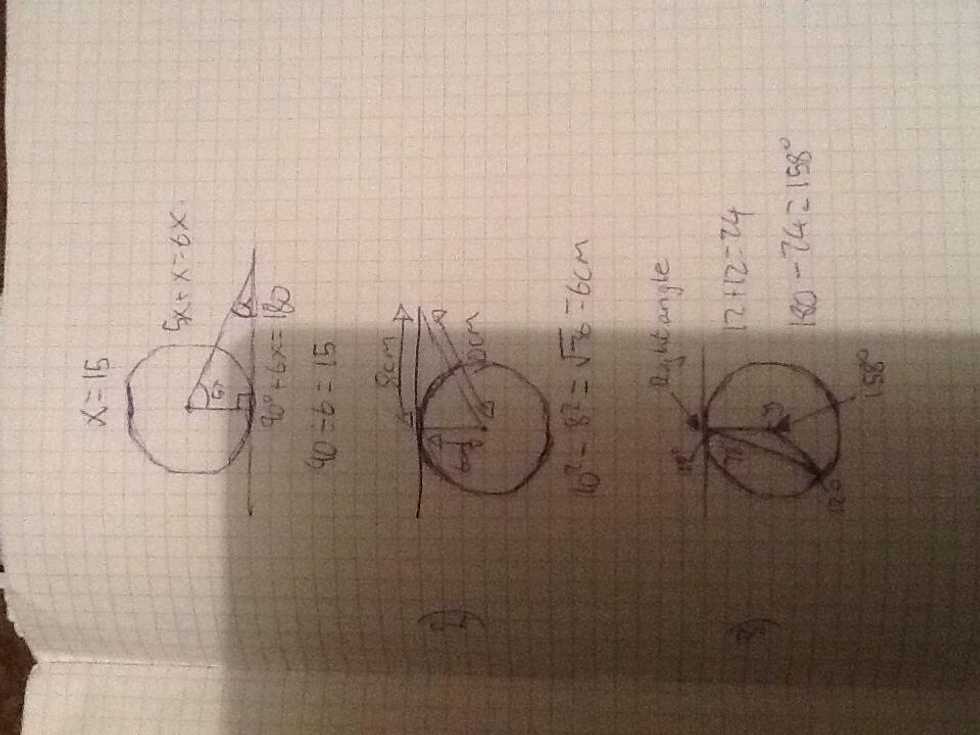 x=15
5x+x=6x
5x
x
90°+6x=180
90÷6=15
2)
8cm
6cm
10cm
10²-8²=√36=6cm
3)
Right angle
78°
y
12°
158°
12+12=24
180-24=158°